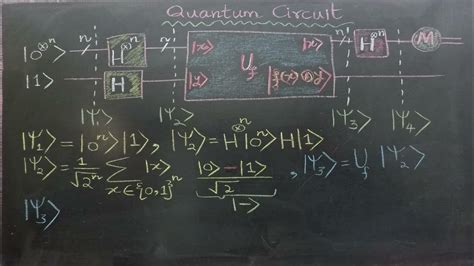 Quantum Circuit
|0^{⊗n}⟩ n H^{⊗n} n |x⟩ U_f |x⟩ n H^{⊗n} M
|1⟩ H |y⟩ |f(x)⊕y⟩
|Ψ₁⟩ |Ψ₂⟩ |Ψ₃⟩ |Ψ₄⟩
|Ψ₁⟩ = |0^n⟩|1⟩, |Ψ₂⟩ = H^{⊗n}|0^n⟩ H|1⟩
|Ψ₂⟩ = 1/√2^n ∑_{x∈{0,1}^n} |x⟩ (|0⟩ − |1⟩)/√2, |Ψ₃⟩ = U_f |Ψ₂⟩
|−⟩
|Ψ₃⟩